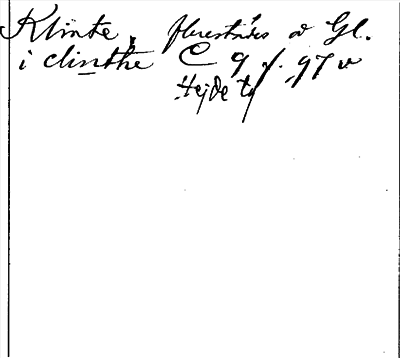 Klinte, flerestäds o Gl.
i clinthe C 9 f. 97 v
Hejde tg